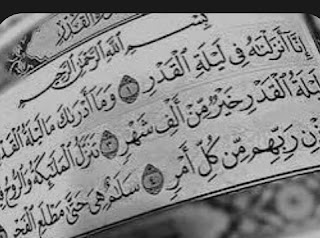 القدر
بِسْمِ ٱللَّهِ ٱلرَّحْمَٰنِ ٱلرَّحِيمِ
إِنَّآ أَنزَلْنَٰهُ فِى لَيْلَةِ ٱلْقَدْرِ ١ وَمَآ أَدْرَىٰكَ مَا لَيْلَةُ ٱلْقَد
لَيْلَةُ ٱلْقَدْرِ خَيْرٌ مِّنْ أَلْفِ شَهْرٍ ٣ تَنَزَّلُ ٱلْمَلَٰٓئِكَةُ وَٱلرُّوحُ
ذْنِ رَبِّهِم مِّن كُلِّ أَمْرٍ ٤ سَلَٰمٌ هِىَ حَتَّىٰ مَطْلَعِ ٱلْفَجْرِ